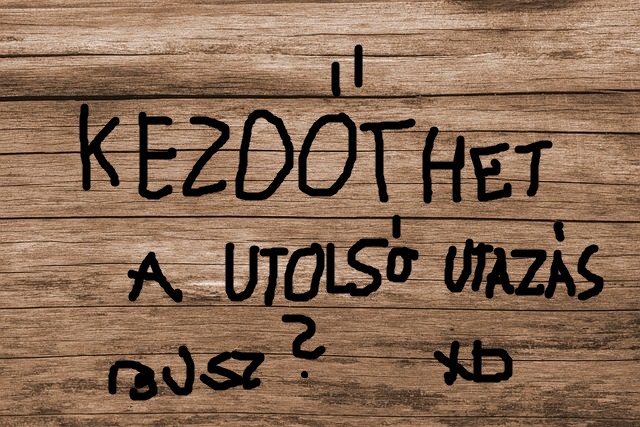 KEZDŐTHET
A UTOLSÓ UTAZÁS
BUSZ ? XD